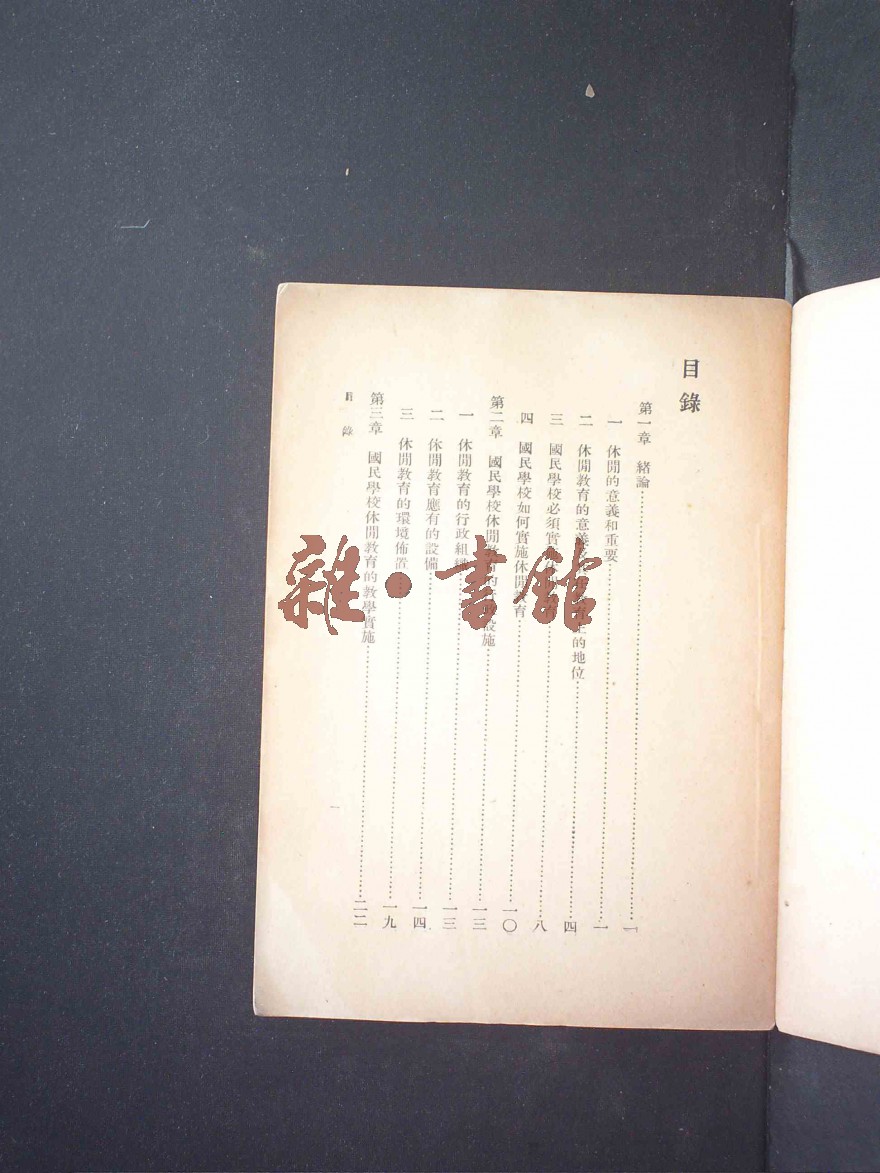 目錄
第一章 緒論…………一
一 休閒的意義和重要…………一
二 休閒教育的意義 上的地位…………四
三 國民學校必須實…………八
四 國民學校如何實施休閒教育…………一〇
第二章 國民學校休閒教育的 設施…………一三
一 休閒教育的行政組…………一三
二 休閒教育應有的設備…………一四
三 休閒教育的環境佈置…………一九
第三章 國民學校休閒教育的教學實施…………二二
目錄
一
雜·書館